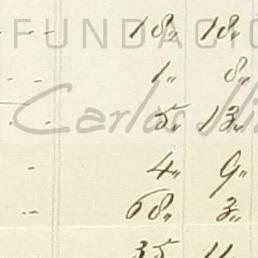 FUNDACIÓ
18„ 18„
1„ 8„
Carlos
5„ 13„
4„ 9„
68„ 3„
35 11„